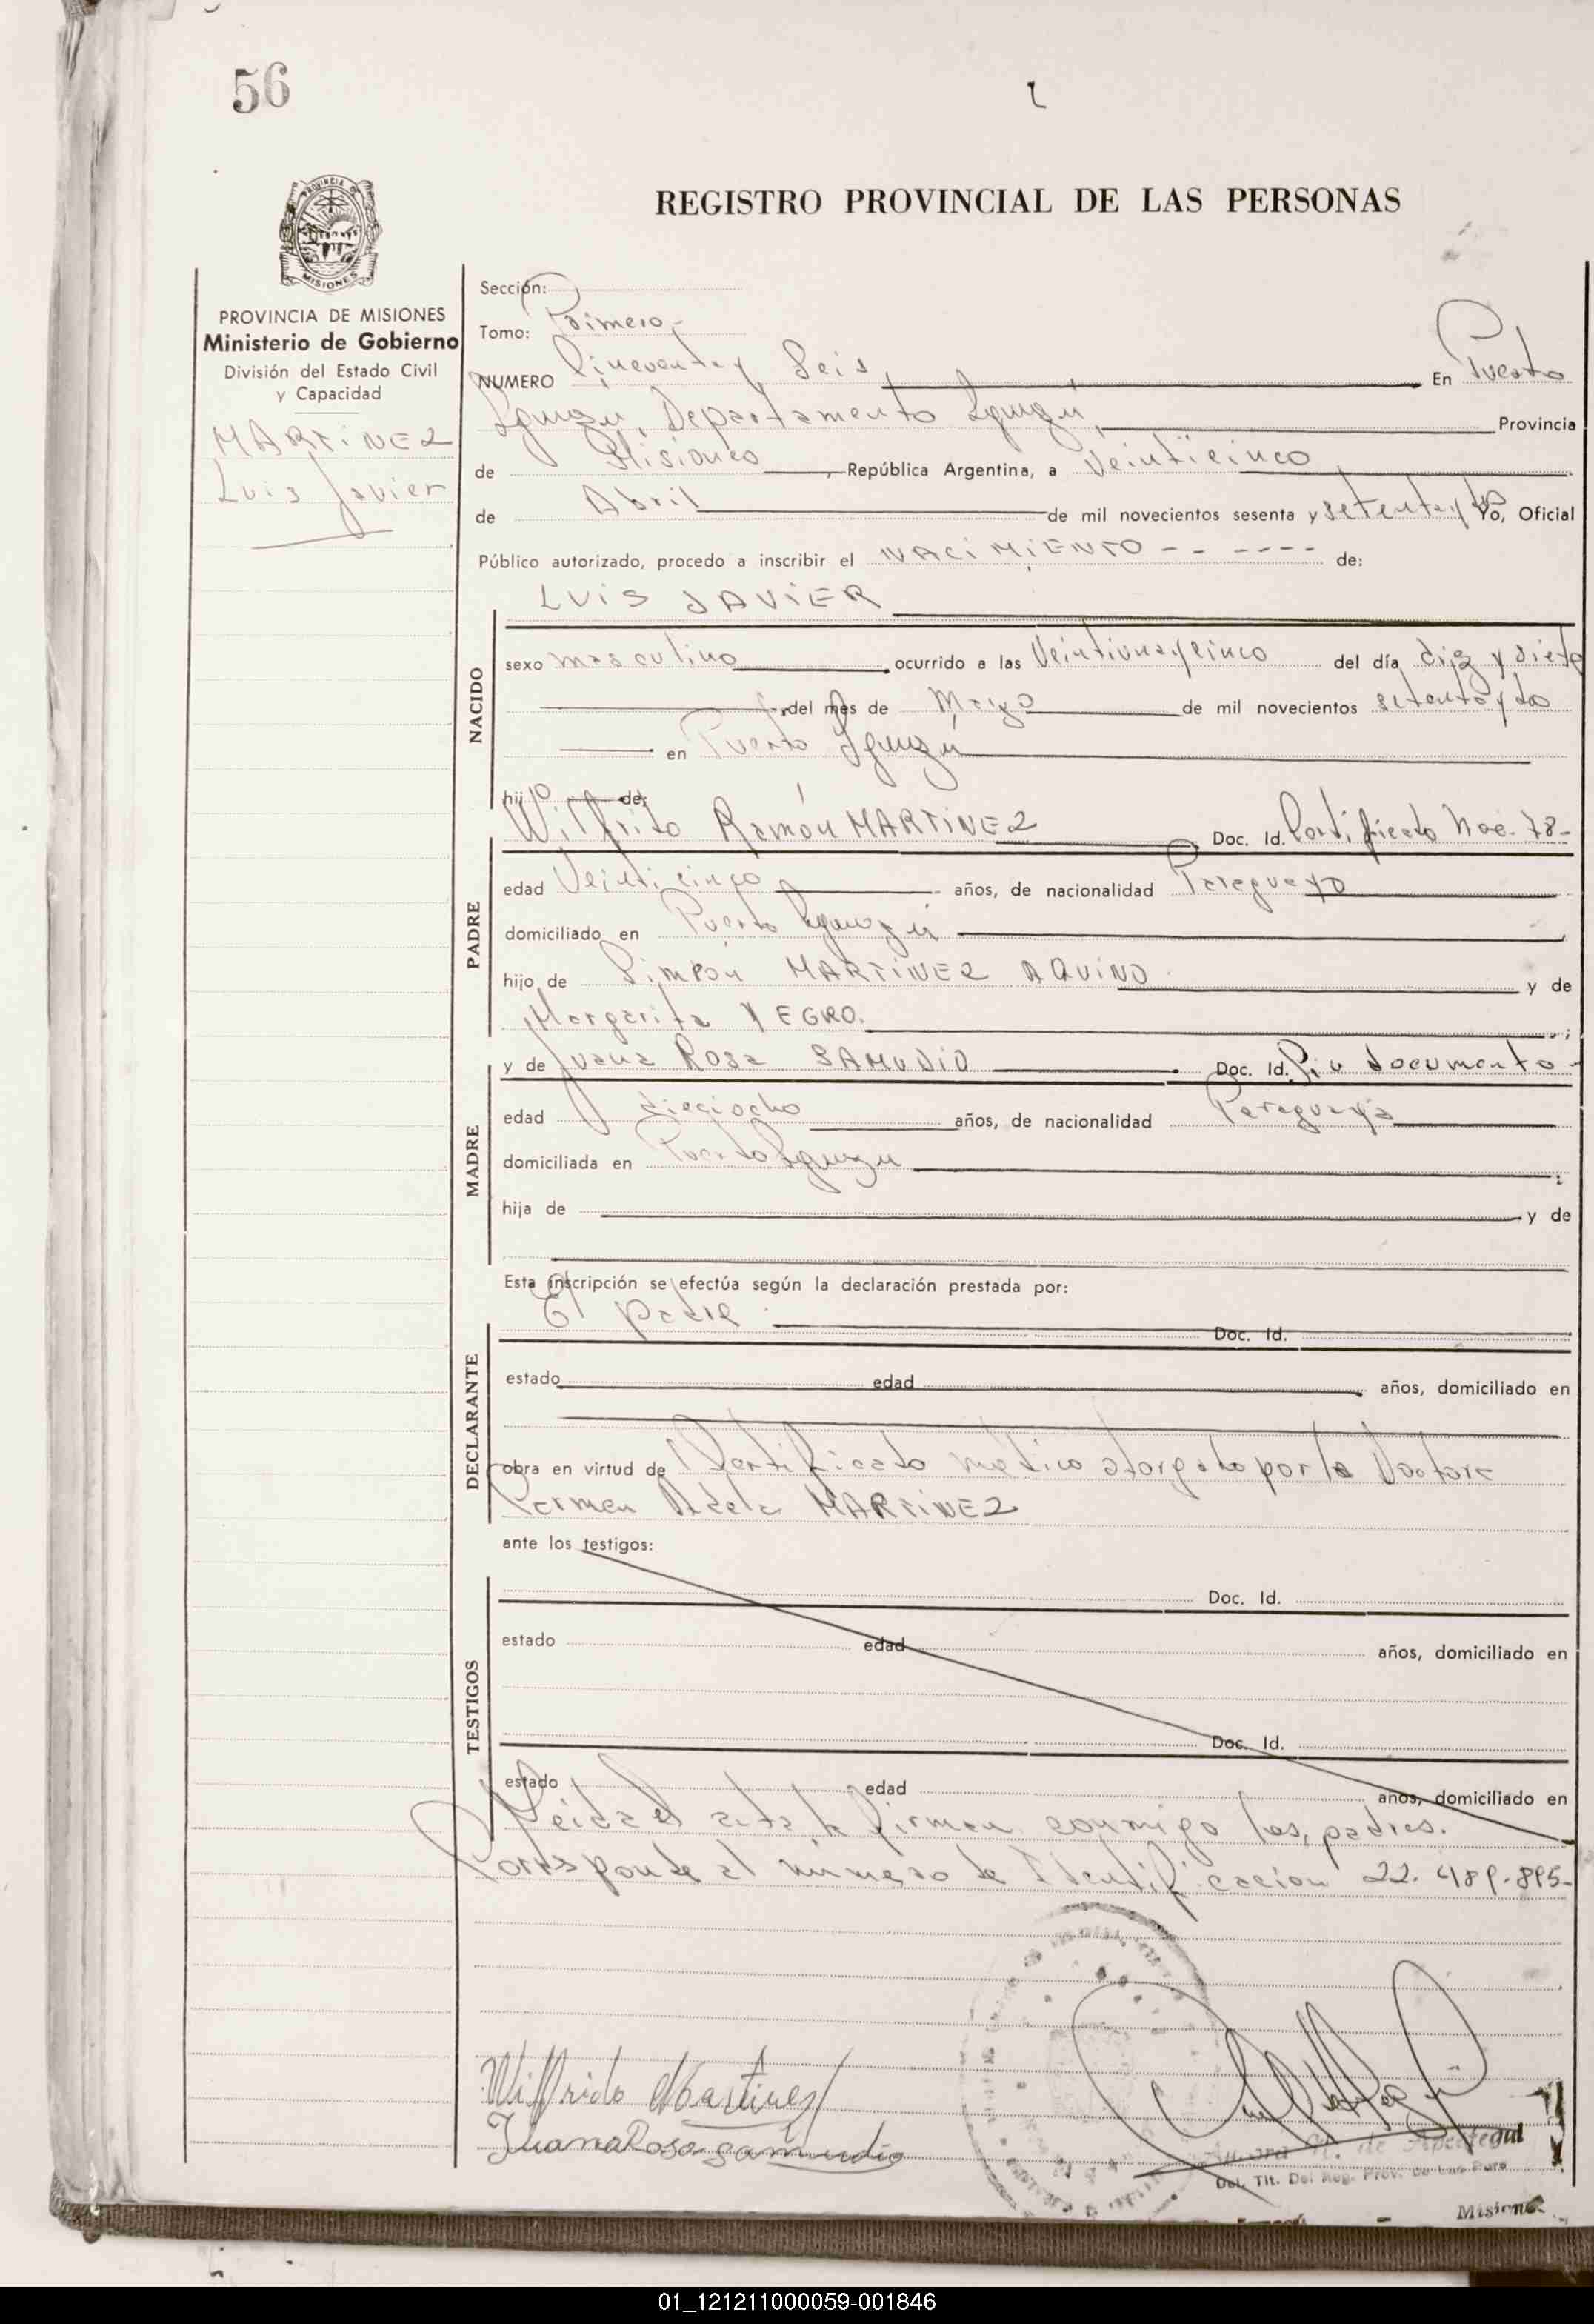 56
REGISTRO PROVINCIAL DE LAS PERSONAS
PROVINCIA DE MISIONES
Ministerio de Gobierno
División del Estado Civil
y Capacidad
MARTINEZ
Luis Javier
Sección:
Tomo: Primero
NUMERO Cincuenta y Seis, En Puerto
Iguazú, Departamento Iguazú, Provincia
de Misiones, República Argentina, a Veinticinco
de Abril de mil novecientos sesenta y setenta y do Yo, Oficial
Público autorizado, procedo a inscribir el NACIMIENTO - - - - - - de:
LUIS JAVIER
NACIDO
sexo masculino, ocurrido a las Veintiuna y cinco del día diez y siete
del mes de Marzo de mil novecientos setenta y dos
en Puerto Iguazú
hijo de:
PADRE
Wilfrito Ramón MARTINEZ Doc. Id. Certificado Nac. 78-
edad Veinticinco años, de nacionalidad Paraguayo
domiciliado en Puerto Iguazú
hijo de Simeón MARTINEZ AQUINO y de
Margarita YEGRO.
MADRE
y de Juana Rosa SAMUDIO Doc. Id. Sin documento
edad dieciocho años, de nacionalidad Paraguaya
domiciliada en Puerto Iguazu
hija de y de
Esta inscripción se efectúa según la declaración prestada por:
DECLARANTE
El padre Doc. Id.
estado edad años, domiciliado en
obra en virtud de Certificado médico otorgado por la Doctora
Carmen Adela MARTINEZ
ante los testigos:
TESTIGOS
Doc. Id.
estado edad años, domiciliado en
Doc. Id.
estado edad años, domiciliado en
Leida el acta la firman conmigo los padres.
Corresponde al número de Identificación 22.489.895-
Wilfrido Martinez
Juana Rosa Samudio
de Apeztegui
Del. Tit. Del Reg. Prov. de las Pers.
Misiones
01_121211000059-001846